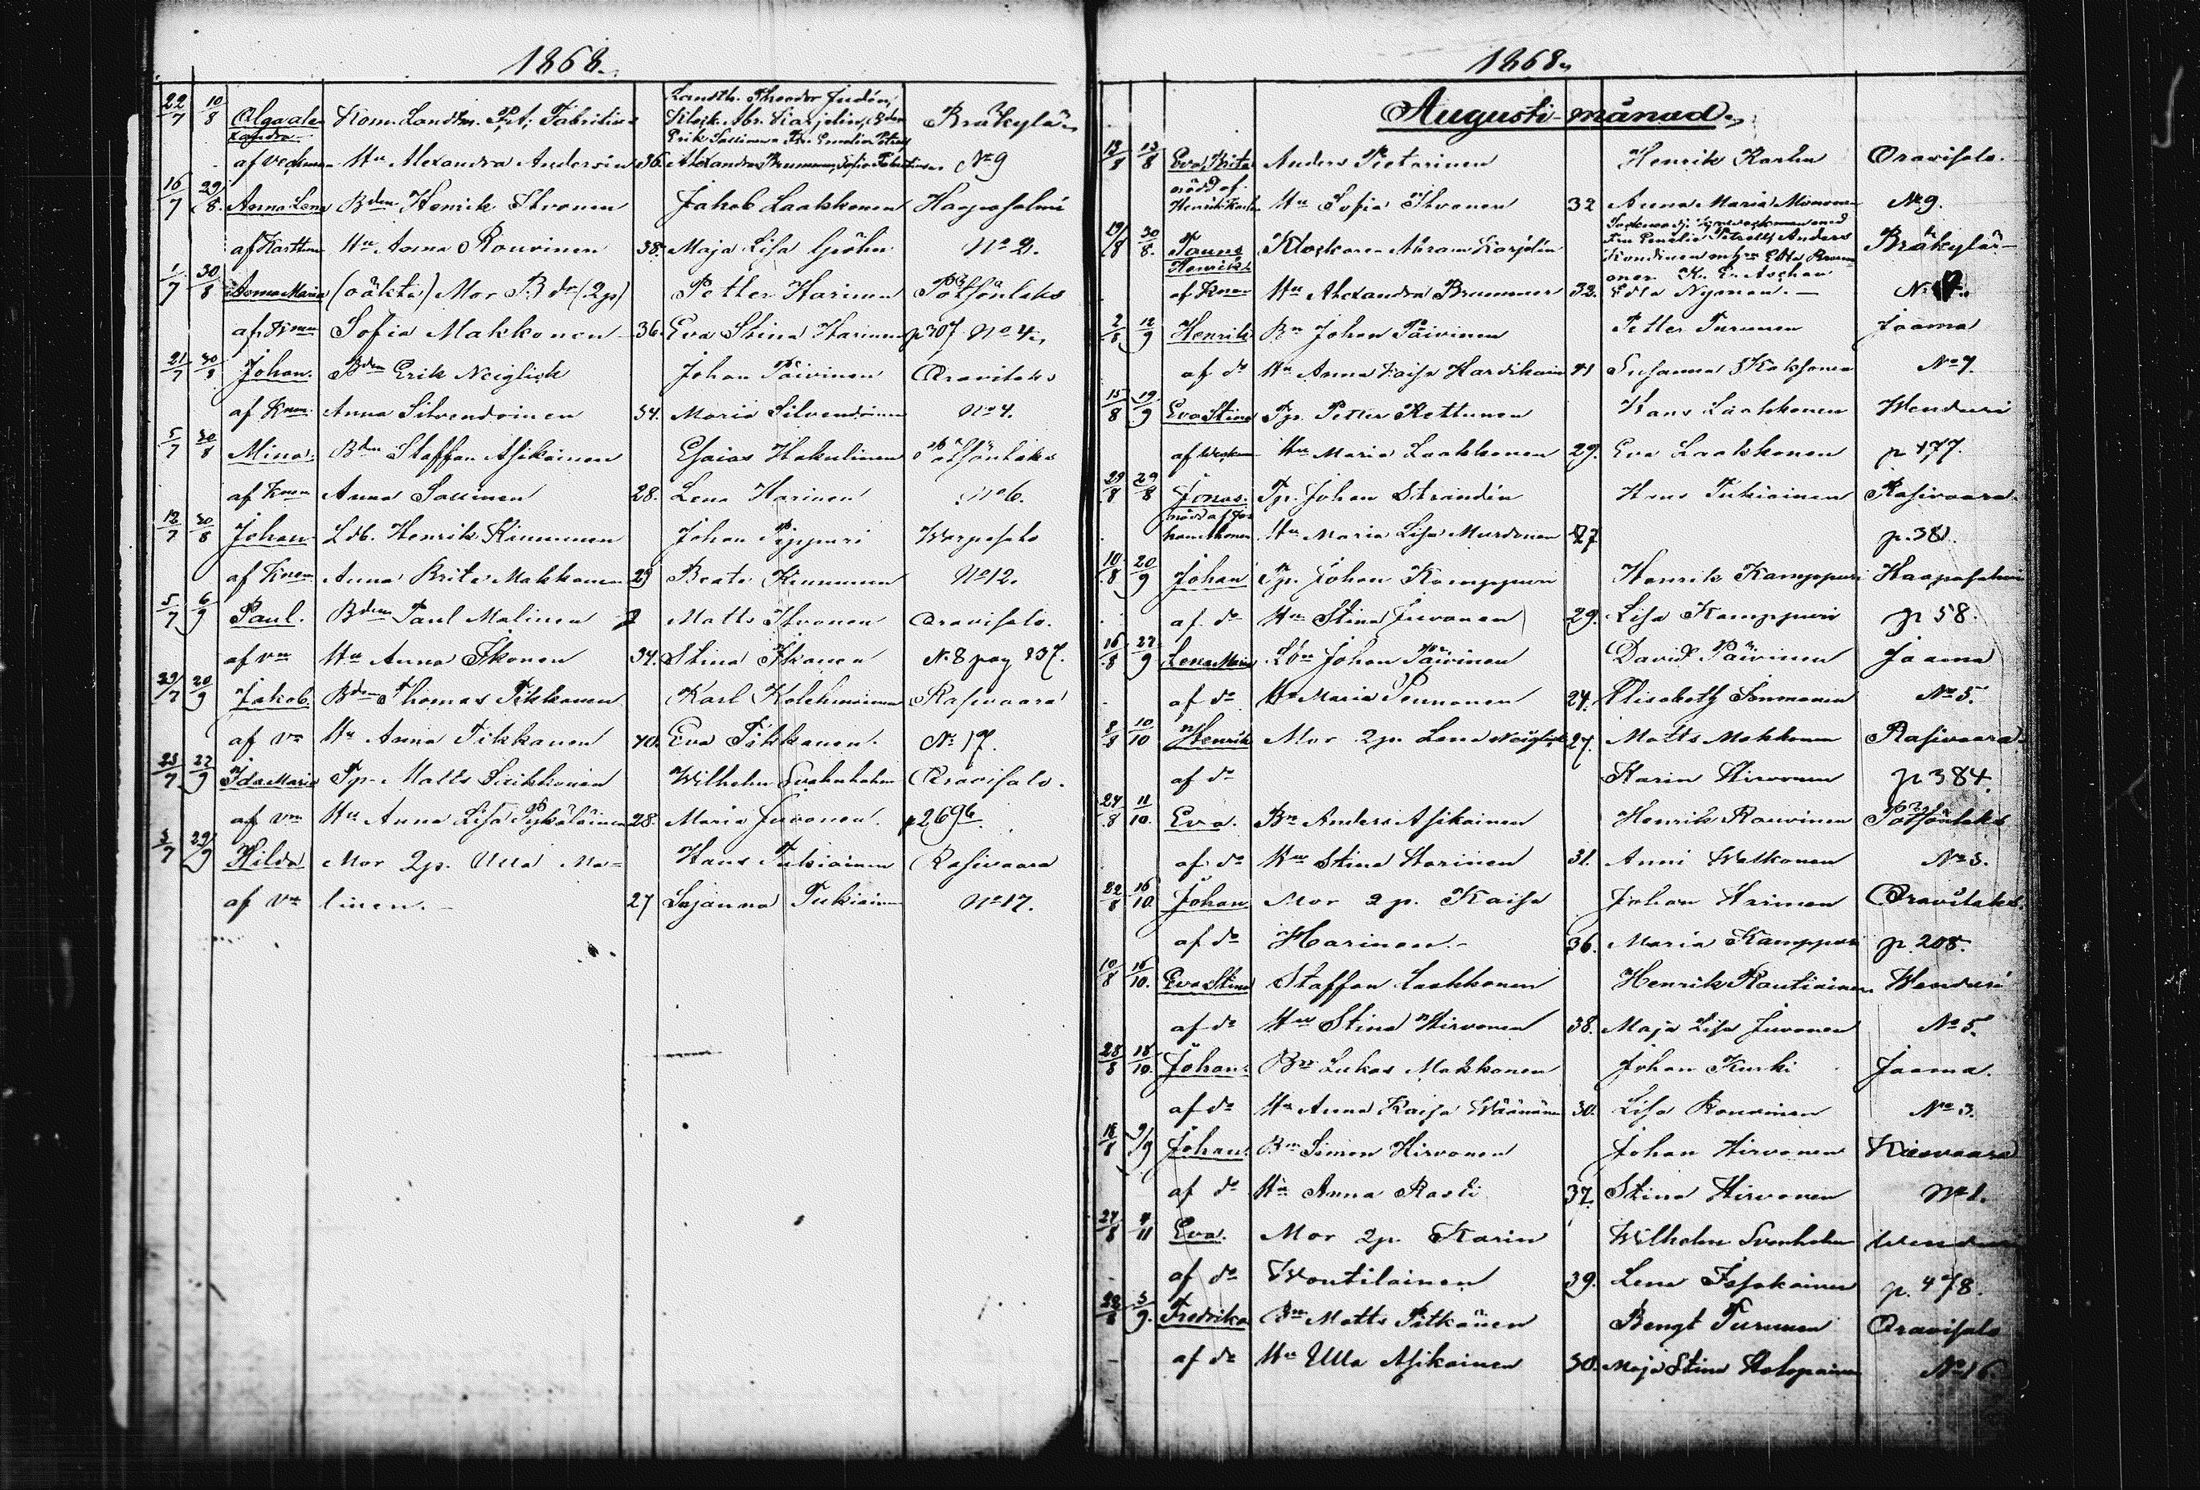 1868.
22/7 10/8 Olga ale- Kom. Landtm. Fabritius Landth. Theodor Bräkylä
xandra Erik Sassinen
af Hu Alexandra Andersin 36. Alexandra Brummer, Sofia No 9
16/7 29/8 Anna Lena Bden Henrik Ihvonen Jakob Laakkonen Haapasalmi
af Hu Anna Rouvinen 38. Maja Lisa No 2.
1/7 30/8 Anna Maria (oäkta) Mor Bdr (2p) Petter Harinen Pötsönlaks
af Sofia Makkonen 36. Eva Stina Harinen p 307 No 4.
21/7 30/8 Johan. Bden Erik Neiglick Johan Päivinen Oravilaks
af Anna Silvendoinen 34. Maria Silvendoinen No 4.
5/7 30/8 Mina. Bden Staffan Asikainen Esaias Hakulinen Pötsönlaks
af Anna Sassinen 28. Lena Harinen No 6.
12/7 30/8 Johan Ldb. Henrik Kinnunen Johan Pippuri Warpasalo
af Anna Brita Makkonen 29 Beata Kinnunen No 12.
5/7 6/9 Paul. Bden Paul Malinen Matts Ihvonen Oravisalo.
af vm Hu Anna Ikonen 34. Stina Ikonen N. 8 pag 237.
29/7 20/9 Jakob. Bden Thomas Tikkanen Karl Kolehmainen Rasivaara
af vm Hu Anna Tikkanen 40. Eva Tikkanen. No 17.
25/7 22/9 Ida Maria Tp. Matts Suikkonen Wilhelm Svahnholm Oravisalo.
af vm Hu Anna Lisa Pykäläinen 28. Maria Juvonen. p 269b.
3/7 29/9 Hilda Mor 2p. Ulla Ma= Hans Tukiainen Rasivaara
af vm linen. 27 Susanna Tukiainen No 17.
1868.
Augusti månad.
13/8 Eva Brita Anders Pietarinen Henrik Karhu Oravisalo.
född af
Henrik Hu Sofia Ihvonen 32 Anna Maria No 9.
19/8 30/8 Klockaren Abram Karjalin Fru Emelie Anders Bräkylä
Henrik
af Hu Alexandra Brummer 32. Edla Nyman.
2/8 12/9 Henrik Bn Johan Päivinen Petter Turunen Jaama
af do Hu Anna Kaisa Hardikainen 41 Susanna No 7.
15/8 19/9 Eva Stina Tp. Petter Rettunen Hans Laakkonen Wenduri
af Hu Maria Laakkonen 29. Eva Laakkonen p 477.
29/8 29/8 Jonas. Tp. Johan Strandén Hans Tukiainen Rasivaara.
född af
Hu Maria Lisa Mustonen 27 p. 381.
10/8 20/9 Johan Tp. Johan Kamppuri Henrik Kamppuri Haapasalmi
af do Hu Stina Juvonen 29. Lisa Kamppuri p 58.
16/8 27/9 Lena Maria Johan Päivinen David Päivinen Jaama
af do Hu Maria Pennanen 24. Elisabeth Immonen No 5.
8/8 10/10 Henrik Mor 2p. Lena Neiglick 27. Matts Makkonen Rasivaara.
af do Karin Hirvonen p 384.
24/8 11/10. Eva. Bn Anders Asikainen Henrik Rouvinen Pötsönlaks
af do Hu Stina Harinen 31. Anni Walkonen No 3.
22/8 16/10 Johan Mor 2p. Kaisa Johan Harinen Oravilaks.
af do Harinen. 36. Maria Kamppuri p. 208.
10/8 16/10. Eva Stina Staffan Laakkonen Henrik Rautiainen Wenduri
af do Hu Stina Hirvonen 38. Maja Lisa Juvonen No 5.
28/8 18/10. Johan Bn Lukas Makkonen Johan Kurki Jaama.
af do Hu Anna Kaisa Wäänänen 30. Lisa Rouvinen No 3.
16/8 9/9 Johan. Bn Simon Hirvonen Johan Hirvonen
af do Hu Anna Rasti 37. Stina Hirvonen No 1.
27/8 4/11 Eva. Mor 2p. Karin Wilhelm Svenholm Wenduri
af do Woutilainen 39. Lena Issakainen p. 478.
22/8 3/9. Fredrika Bn Matts Pitkänen Bengt Turunen Oravisalo
af do Hu Ulla Asikainen 30. Maja Stina Holopainen No 16.